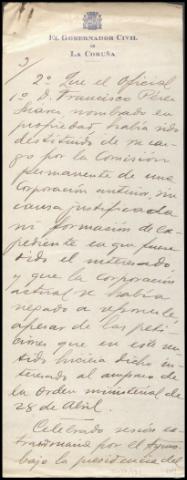 EL GOBERNADOR CIVIL
DE
LA CORUÑA
3
2º Que el Oficial
1º D. Francisco Pérez
Suarez, nombrado en
propiedad, había sido
destituido de su car-
go por la Comisión
permanente de una
Corporación anterior, sin
causa justificada
ni formacion de ex-
pediente en que fuese
oido el interesado
y que la corporación
actual se había
negado a reponerle,
apesar de las peti-
ciones que en este sen-
tido hiciera dicho in-
teresado al amparo de
la Orden ministerial de
28 de Abril.
Celebrada sesión ex-
traordinaria por el Ayun
bajo la presidencia del